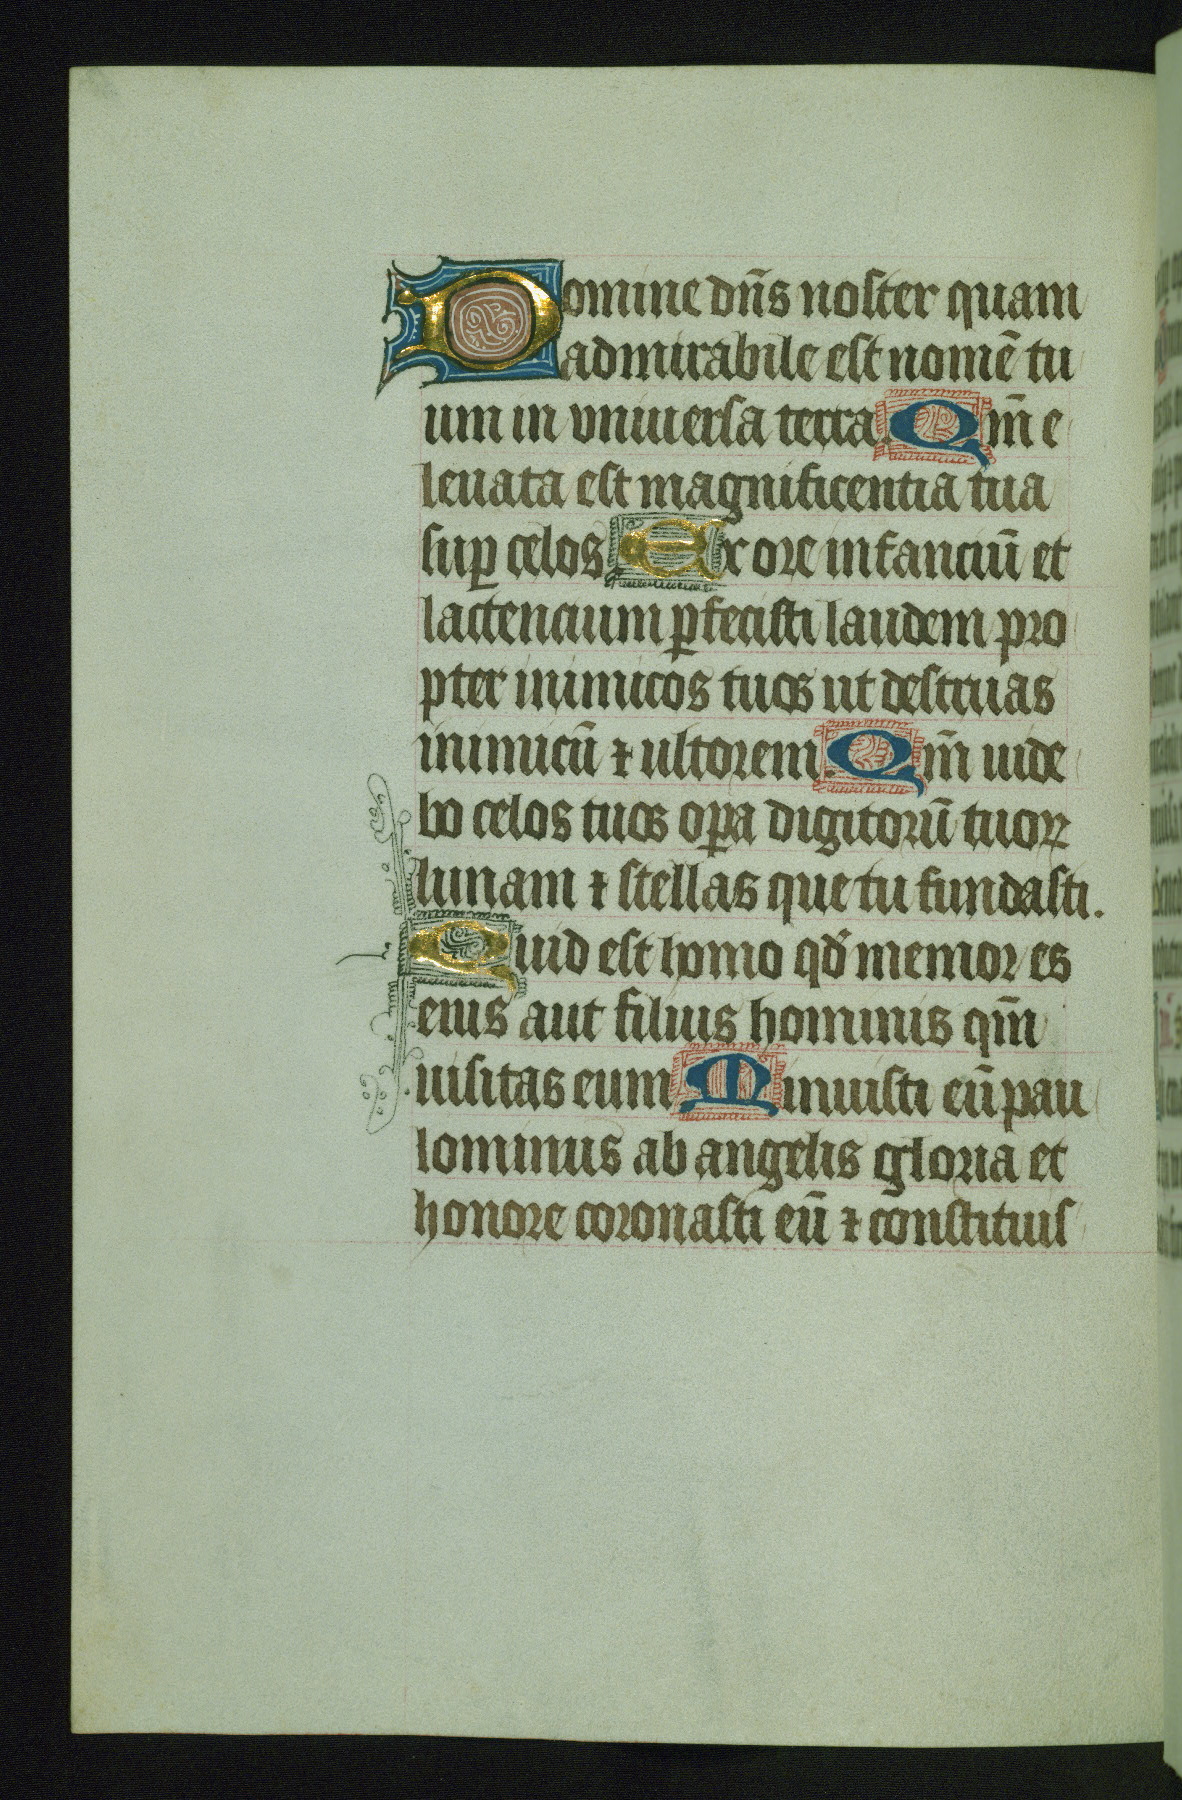 Domine dn̄s noster quam
admirabile est nomē tu
um in vniuersa terra. Qm̄ e
leuata est magnificentia tua
suꝑ celos. Ex ore infanciū et
lactencium ꝑfecisti laudem pro
pter inimicos tuos ut destruas
inimicū ⁊ ultorem. Qm̄ uide
bo celos tuos oꝑa digitorū tuoꝝ
lunam ⁊ stellas que tu fundasti.
Quid est homo qd̄ memor es
eius aut filius hominis qm̄
uisitas eum Minuisti eū pau
lominus ab angelis gloria et
honore coronasti eū ⁊ constituis